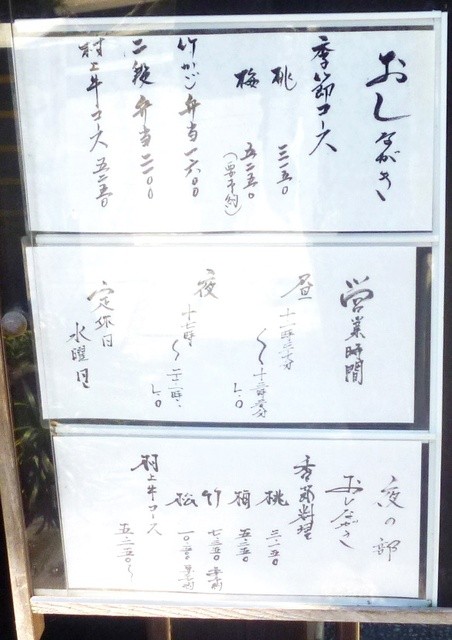 おしながき
季節コース
桃 三一五〇
梅 五二五〇
(要予約)
竹かご弁当 一六〇〇
二段弁当 二一〇〇
村上牛コース 五二五〇
営業時間
昼 十一時三十分
〜十三時
L.O
夜 十七時
〜二十一時
L.O
定休日
水曜日
夜の部
おしながき
季節料理
桃 三一五〇
梅 五二五〇
竹 七三五〇 要予約
松 一〇五〇〇 要予約
村上牛コース
五二五〇〜